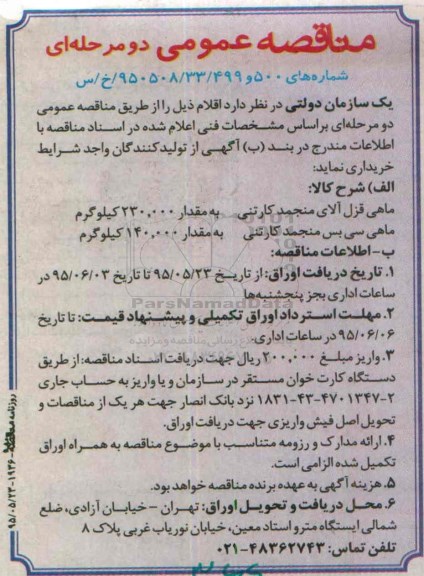 مناقصه عمومی دو مرحله‌ای
شماره‌های ۵۰۰ و ۹۵۰۵۰۸/۳۳/۴۹۹/خ/س
یک سازمان دولتی در نظر دارد اقلام ذیل را از طریق مناقصه عمومی
دو مرحله‌ای براساس مشخصات فنی اعلام شده در اسناد مناقصه با
اطلاعات مندرج در بند (ب) آگهی از تولیدکنندگان واجد شرایط
خریداری نماید:
الف) شرح کالا:
ماهی قزل آلای منجمد کارتنی به مقدار ۲۳۰,۰۰۰ کیلوگرم
ماهی سی بس منجمد کارتنی به مقدار ۱۴۰,۰۰۰ کیلوگرم
ب- اطلاعات مناقصه:
۱. تاریخ دریافت اوراق: از تاریخ ۹۵/۰۵/۲۳ تا تاریخ ۹۵/۰۶/۰۳ در
ساعات اداری بجز پنجشنبه‌ها
ParsNamadData
۲. مهلت استرداد اوراق تکمیلی و پیشنهاد قیمت: تا تاریخ
۹۵/۰۶/۰۶ در ساعات اداری.
۳. واریز مبلغ ۲۰۰,۰۰۰ ریال جهت دریافت اسناد مناقصه: از طریق
دستگاه کارت خوان مستقر در سازمان و یا واریز به حساب جاری
۱۸۳۱-۴۳-۴۷۰۱۳۴۷-۲ نزد بانک انصار جهت هر یک از مناقصات و
تحویل اصل فیش واریزی جهت دریافت اوراق.
۴. ارائه مدارک و رزومه متناسب با موضوع مناقصه به همراه اوراق
تکمیل شده الزامی است.
۵. هزینه آگهی به عهده برنده مناقصه خواهد بود.
۶. محل دریافت و تحویل اوراق: تهران - خیابان آزادی، ضلع
شمالی ایستگاه مترو استاد معین، خیابان نوریاب غربی پلاک ۸
تلفن تماس: ۴۸۳۶۲۷۴۳-۰۲۱
روزنامه ۱۹۳۶-۹۵/۰۵/۲۳